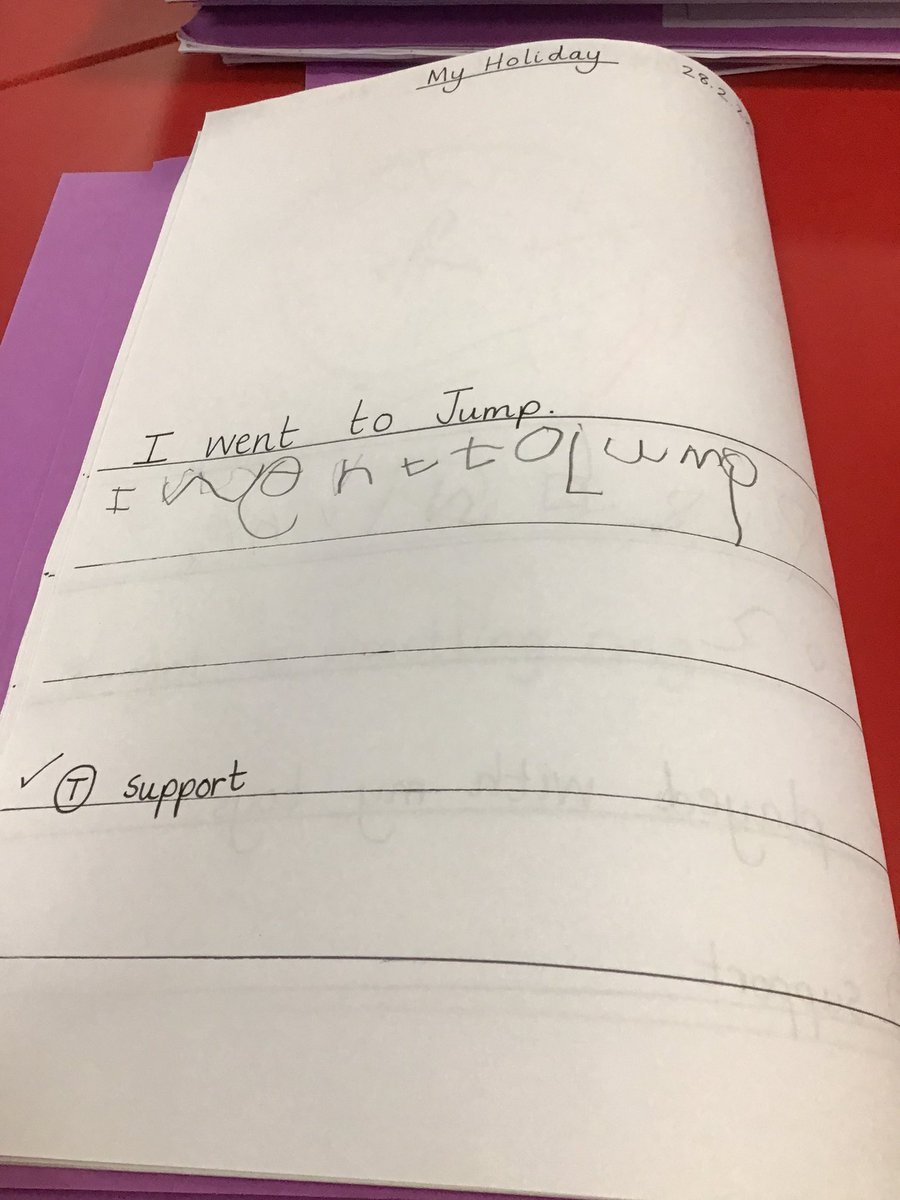 My Holiday
28.2.
I went to Jump.
I went to Jump
✓ Ⓣ support